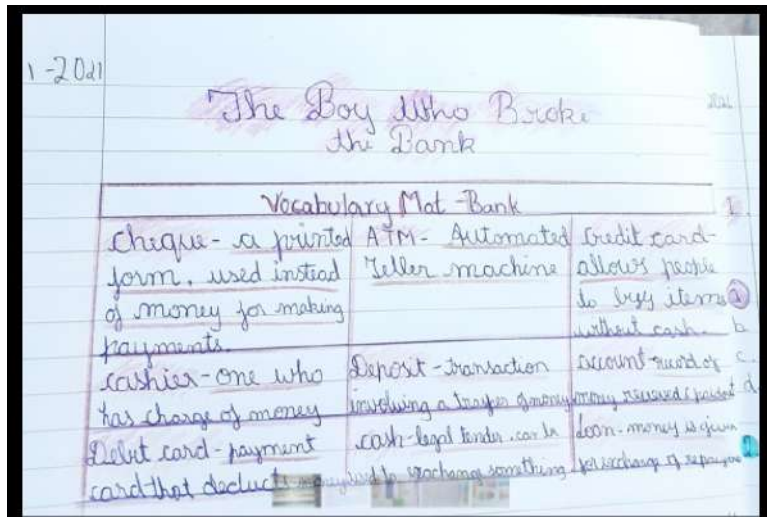 1-2021
The Boy Who Broke
the Bank
Vocabulary Mat-Bank
Cheque- a printed
form, used instead
of money for making
payments.
ATM- Automated
Teller machine
Credit card-
allows people
to buy items
without cash.
cashier-one who
has charge of money
Deposit-transaction
involving a transfer of money
account-record of
money received & paid out
Debit card-payment
card that deducts money
cash-legal tender. can be
used to exchange something
loan-money is given
for exchange of
1.
a
b
c.
d